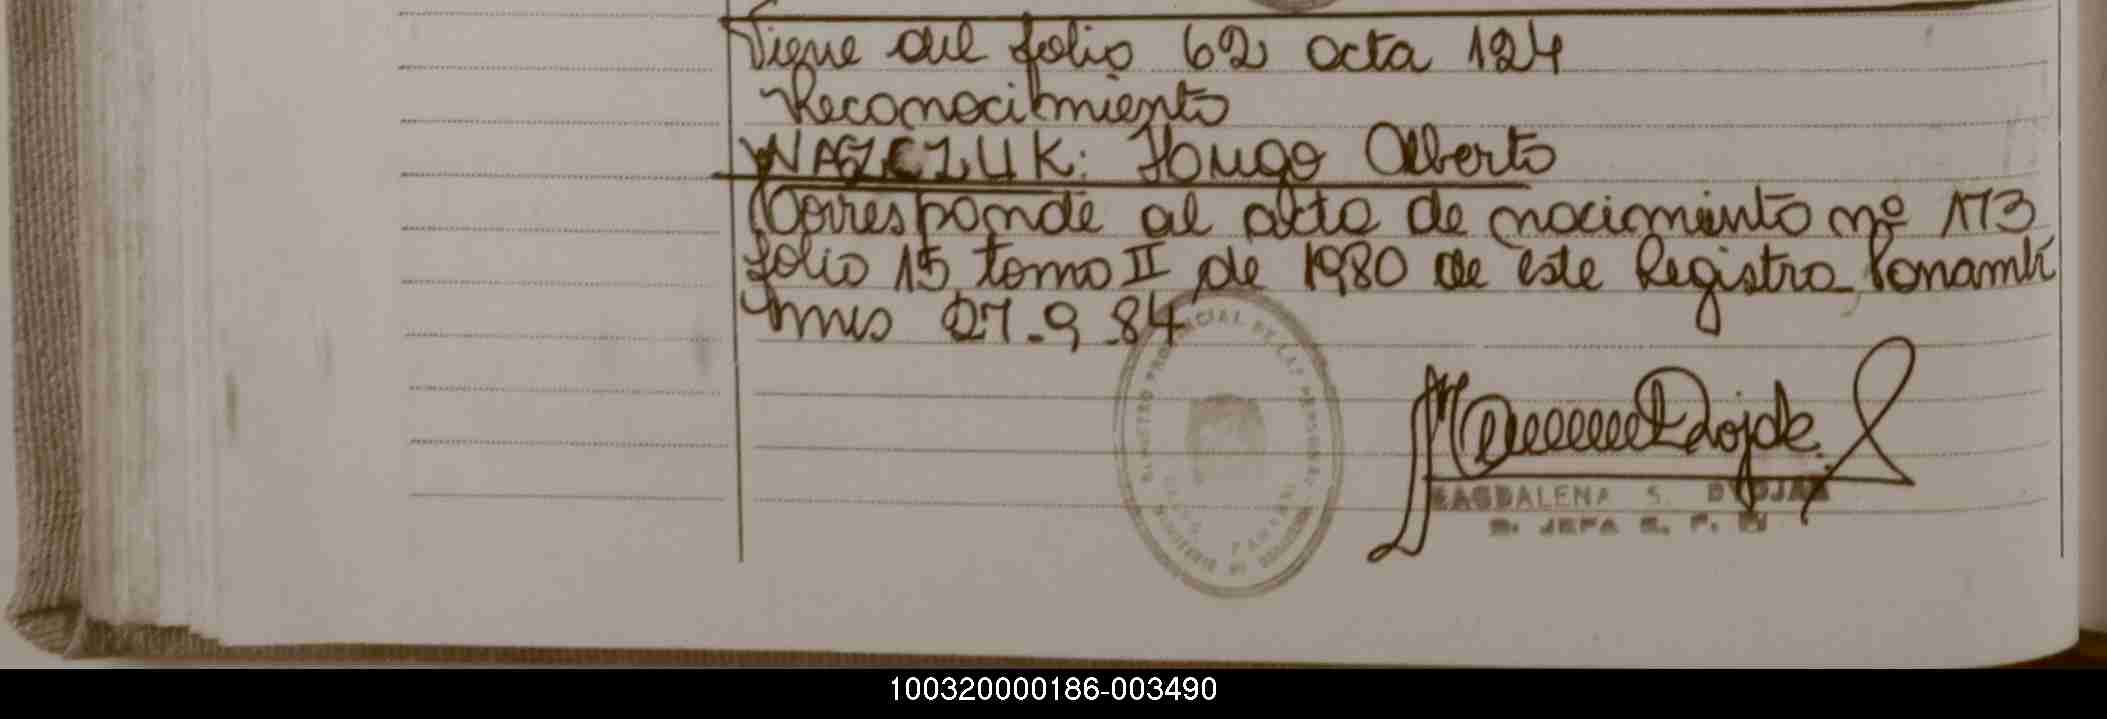 Viene del folio 62 acta 124
Reconocimiento
WASZCZUK: Hugo Alberto
Corresponde al acta de nacimiento nº 173
folio 15 tomo II de 1980 de este Registro Panambí
mns 27-9-84
REGISTRO PROVINCIAL DE LAS PERSONAS
PANAMBI
MINISTERIO DE GOBIERNO
MAGDALENA S. DROJAK
D. JEFA
100320000186-003490